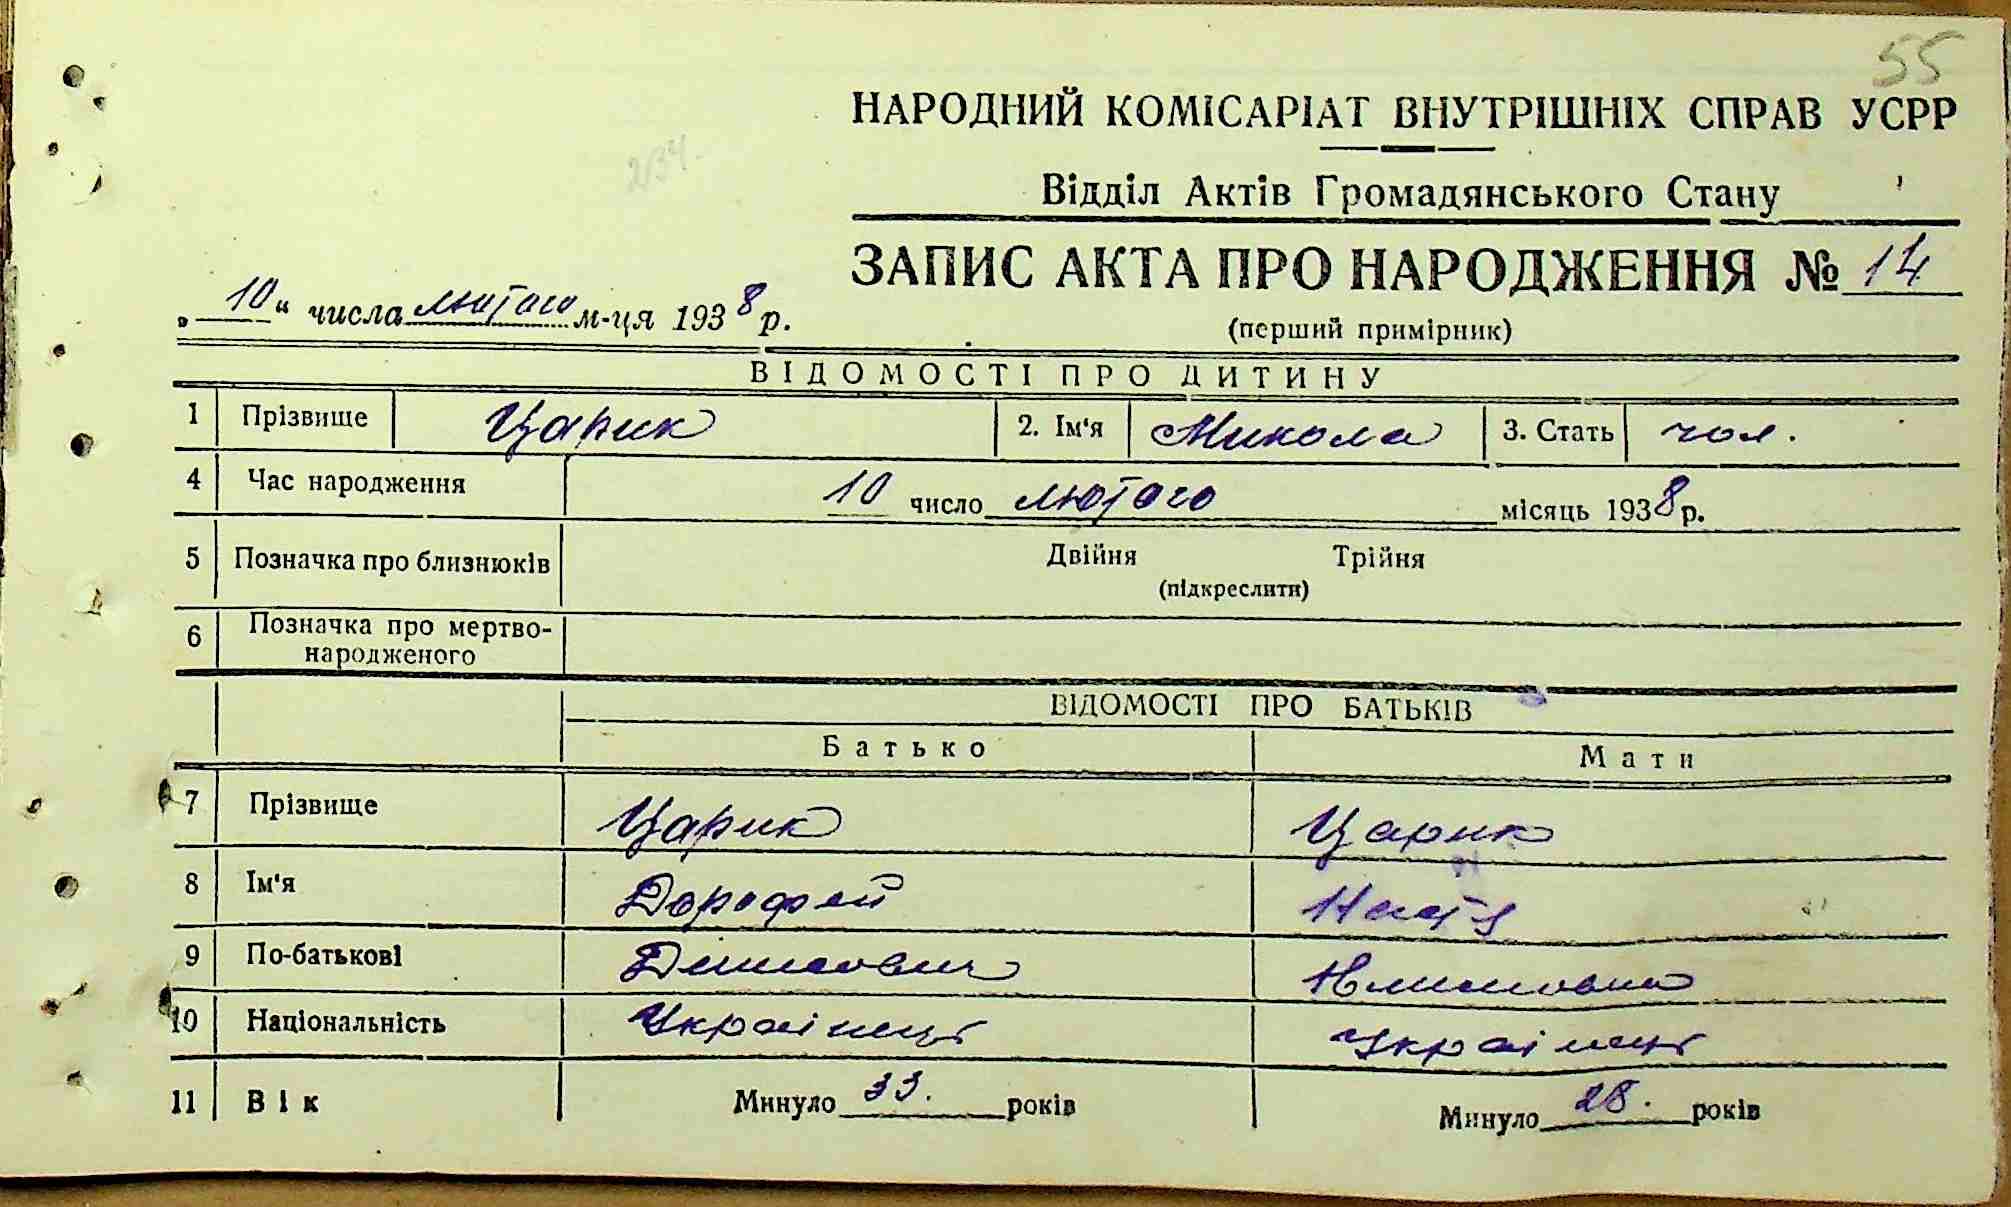 55
НАРОДНИЙ КОМІСАРІАТ ВНУТРІШНІХ СПРАВ УСРР
234.
Відділ Актів Громадянського Стану
ЗАПИС АКТА ПРО НАРОДЖЕННЯ № 14
„ 10 “ числа лютого м-ця 1938 р.
(перший примірник)
ВІДОМОСТІ ПРО ДИТИНУ
1 Прізвище Царик 2. Ім'я Микола 3. Стать чол.
4 Час народження 10 число лютого місяць 1938 р.
5 Позначка про близнюків Двійня Трійня
(підкреслити)
6 Позначка про мертво-
народженого
ВІДОМОСТІ ПРО БАТЬКІВ
Батько Мати
7 Прізвище Царик Царик
8 Ім'я Дорофей Настя
9 По-батькові Денисович Климовна
10 Національність Українець
11 Вік Минуло 33. років Минуло 28. років